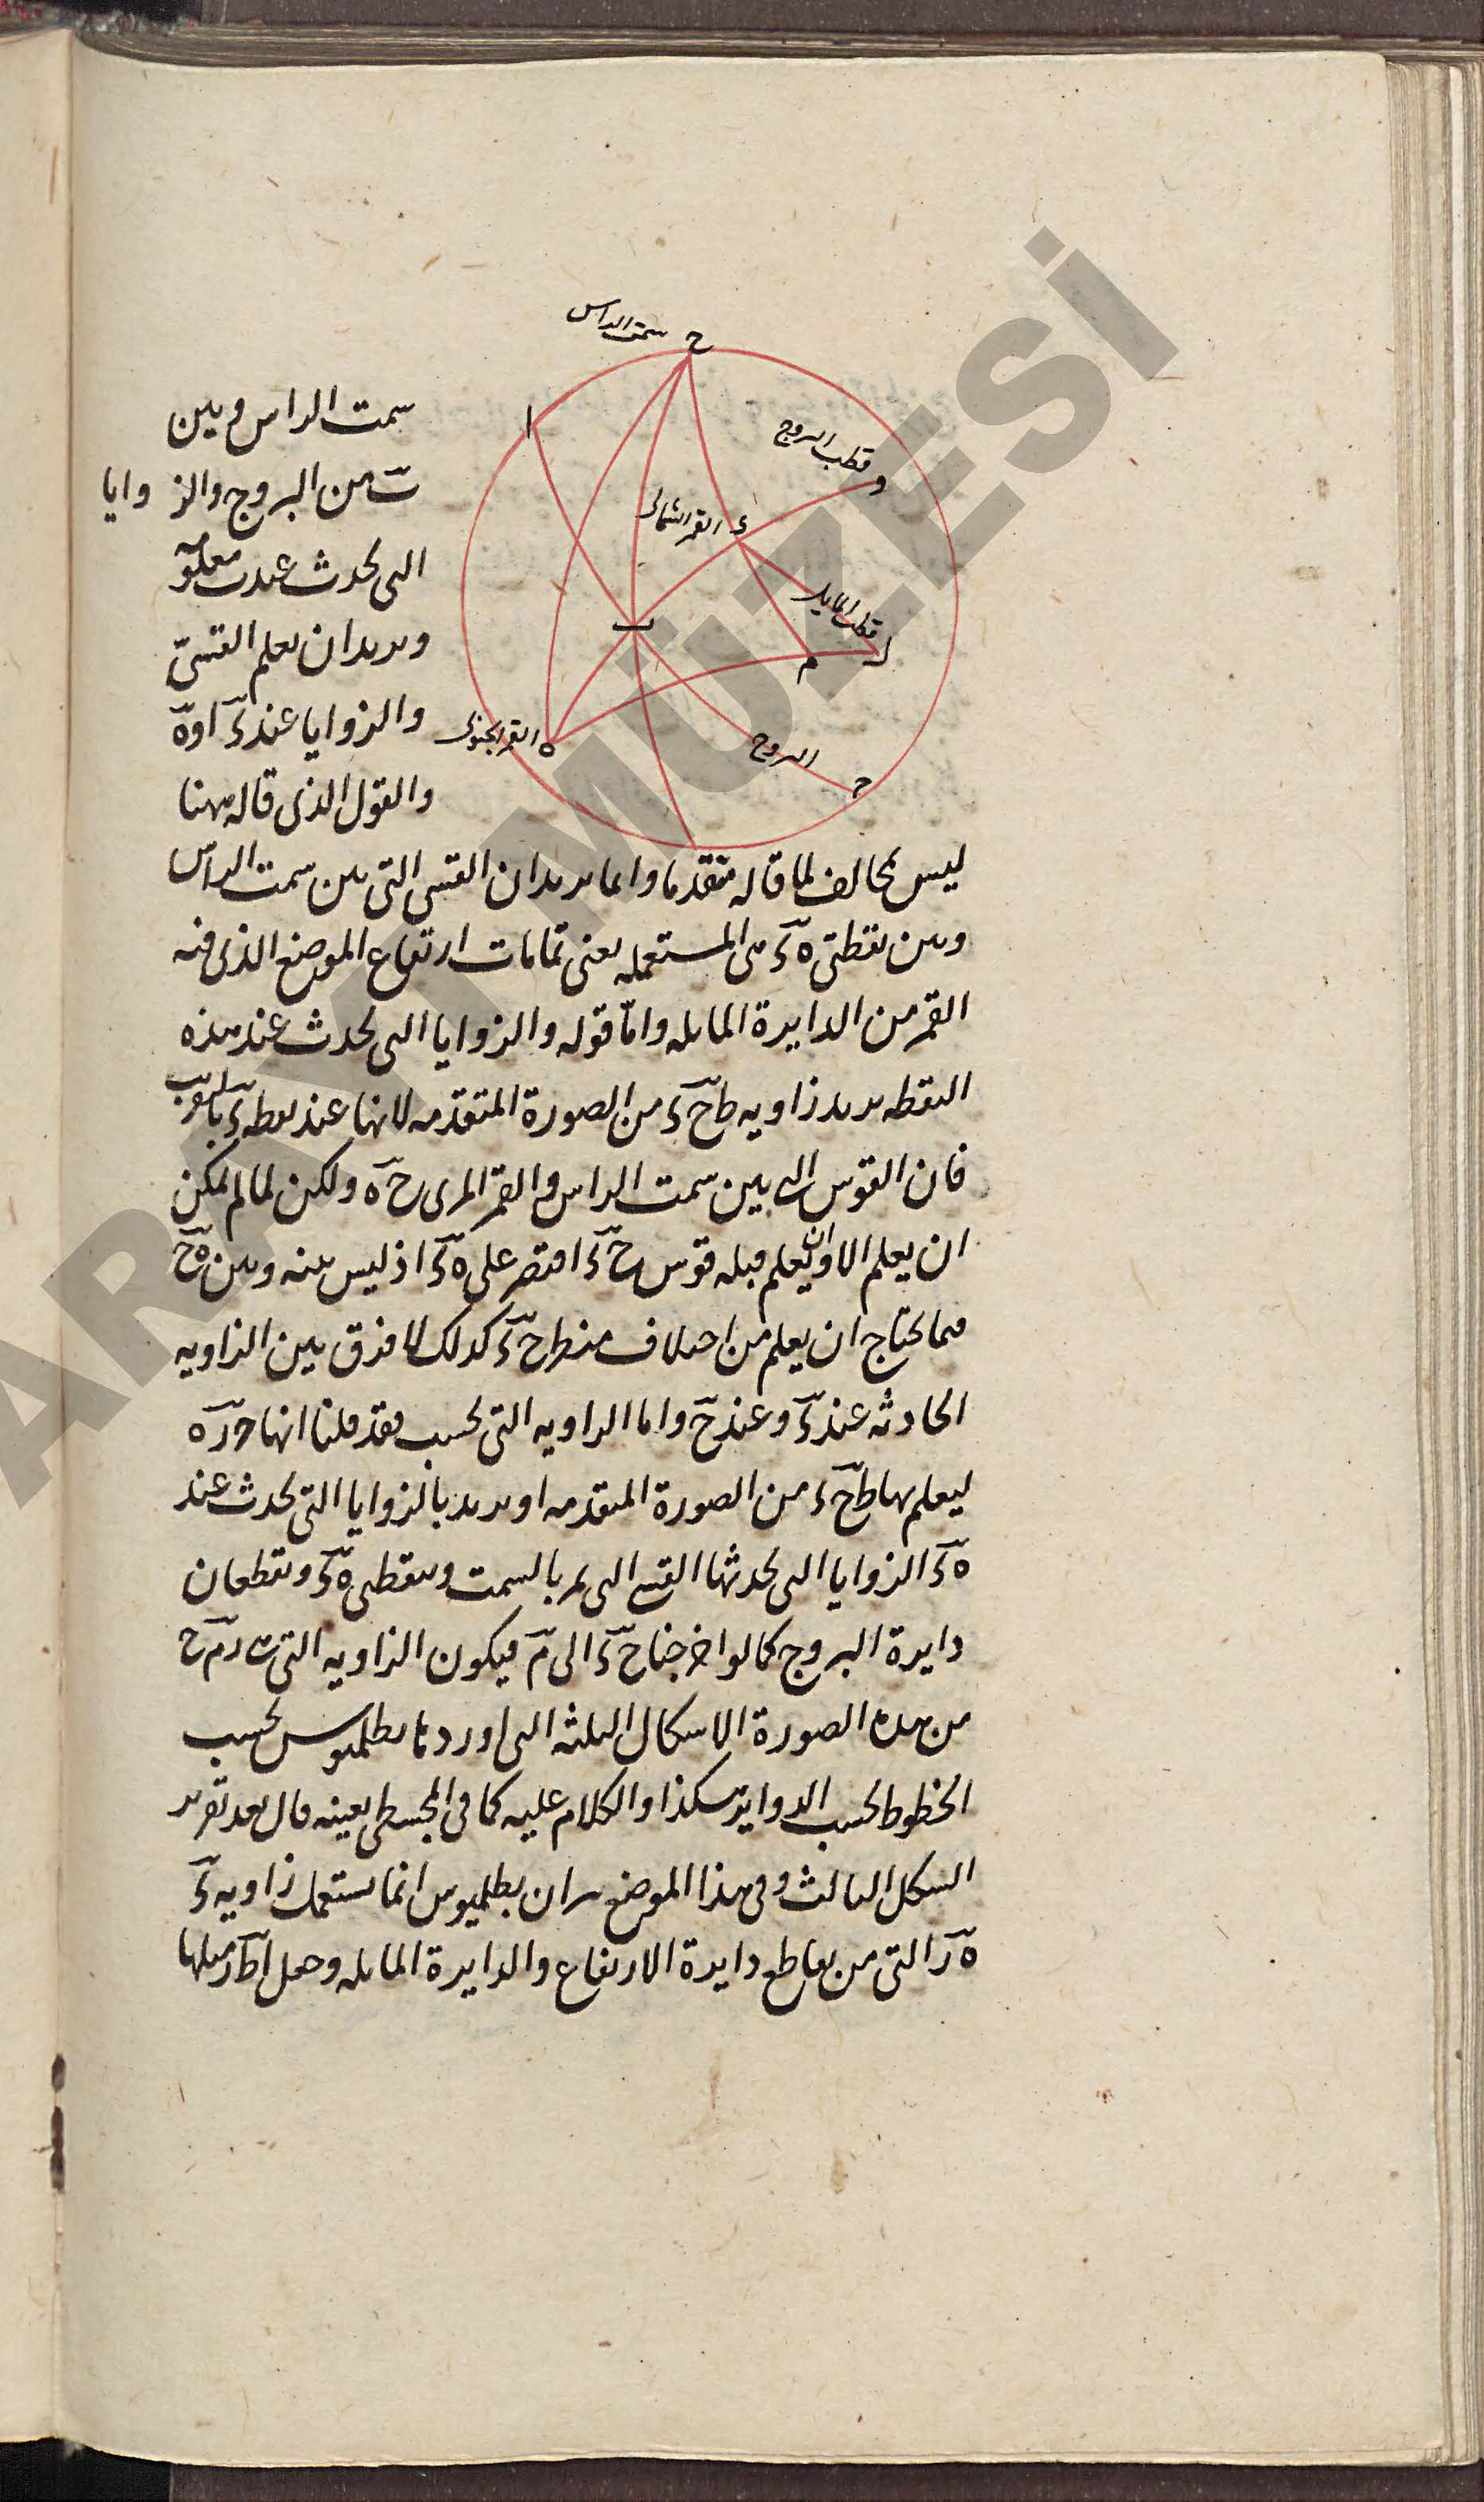 سمت الراس
ح
ا
قطب البروج
و
القمر الشمالى
ء
قطب المايل
ل
م
ب
القمر الجنوبى
ه
البروج
ج
سمت الراس وبين
ب من البروج والزوايا
التى تحدث عند ب معلومة
ويريد ان يعلم القسى
والزوايا عند ء او ه
والقول الذى قاله ههنا
ليس بمخالف لما قاله متقدما وانما يريد ان القسى التى بين سمت الراس
وبين نقطتى ه ء هى المستعمله يعنى تمامات ارتفاع الموضع الذى فيه
القمر من الدايرة المايله واما قوله والزوايا التى تحدث عند هذه
النقطه يريد زاويه ط ح ء من الصورة المتقدمه لانها عند نقطه ء بالقرب
فان القوس التى بين سمت الراس والقمر المرى ح ه ولكن لما لم يمكن
ان يعلم الا وان يعلم قبله قوس ح ء اقتصر على ه ء اذ ليس بينه وبين ه ح
مما يحتاج ان يعلم من اختلاف منظر ح ء كذلك لا فرق بين الزاويه
الحادثه عند ء وعند ح واما الزاويه التى تحسب فقد قلنا انها ح ر ه
ليعلم بها ط ح ء من الصورة المتقدمه او يريد بالزوايا التى تحدث عند
ه ء الزوايا التى تحدثها القسى التى تمر بالسمت وبنقطتى ه ء وتقطعان
دايرة البروج كما لو اخرجنا ح ء الى م فيكون الزاويه التى ب م ح
من هذه الصورة الاشكال الثلثه التى اوردها بطلميوس بحسب
الخطوط بحسب الدواير هكذا والكلام عليه كما فى المجسطى بعينه قال بعد تقرير
الشكل الثالث وفى هذا الموضع ان بطلميوس انما يستعمل زاويه ء
ه ر التى من تقاطع دايرة الارتفاع والدايرة المايله وجعل ا ط ر مثلها
ARAT MÜZESİ